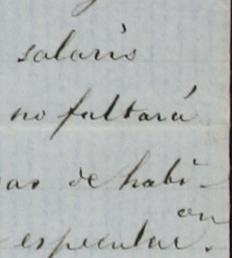 salario
no faltará
as de habi-
en
especular.